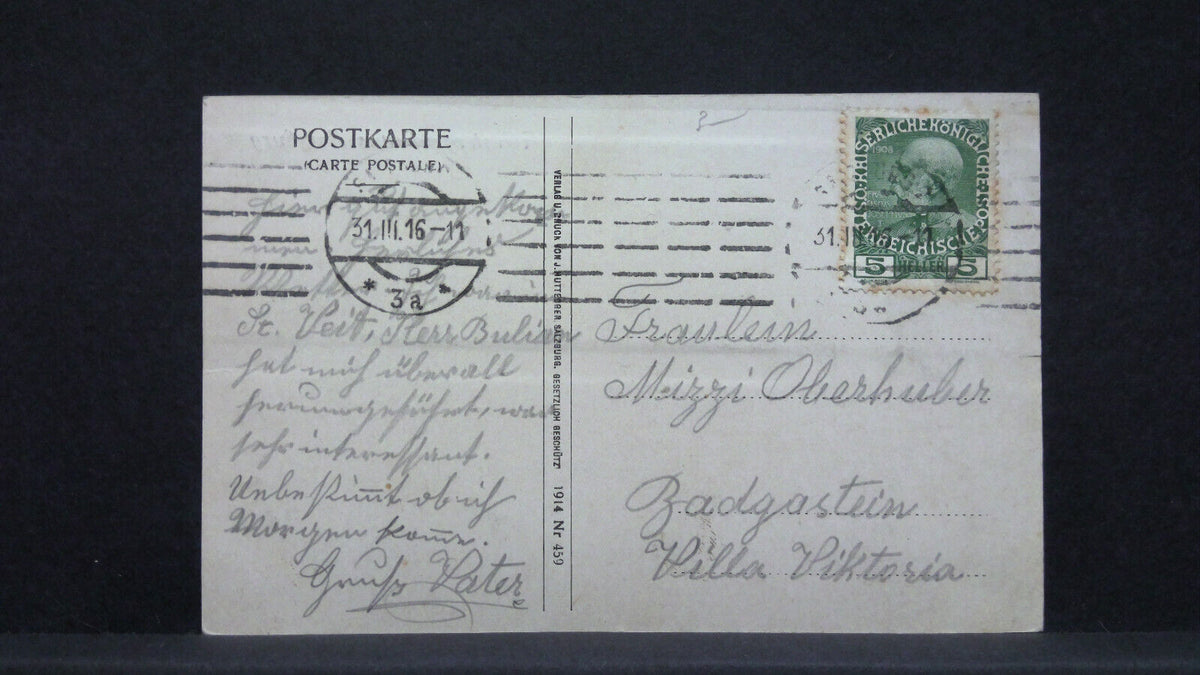 POSTKARTE
(CARTE POSTALE)
31.III.16-11
* 3a *
Hier
St. Veit, Herr Bulian
hat mich überall
herumgeführt, war
sehr interessant.
Unbestimmt ob ich
Morgen komme.
Gruß Vater
VERLAG U. DRUCK VON J. HUTTEGGER, SALZBURG. GESETZLICH GESCHÜTZT 1914 Nr 459
3
KAISERLICHE KÖNIGLICHE ÖSTERREICHISCHE POST
1908
5 HELLER 5
31.III.16-11
Fräulein
Mizzi Oberhuber
Badgastein
Villa Viktoria